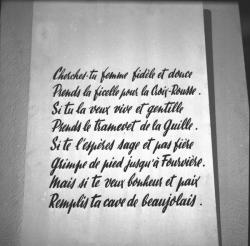 Cherches-tu femme fidèle et douce
Prends la ficelle pour la Croix-Rousse.
Si tu la veux vive et gentille
Prends le tramevet de la Guille.
Si te l'espères sage et pas fière
Grimpe de pied jusqu'à Fourvière.
Mais si te veux bonheur et paix
Remplis ta cave de beaujolais.